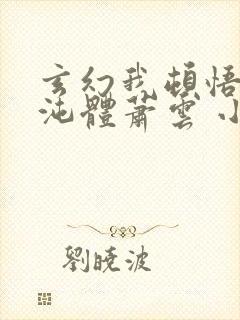 玄幻我頓悟
沌體蕭雲小
劉曉波